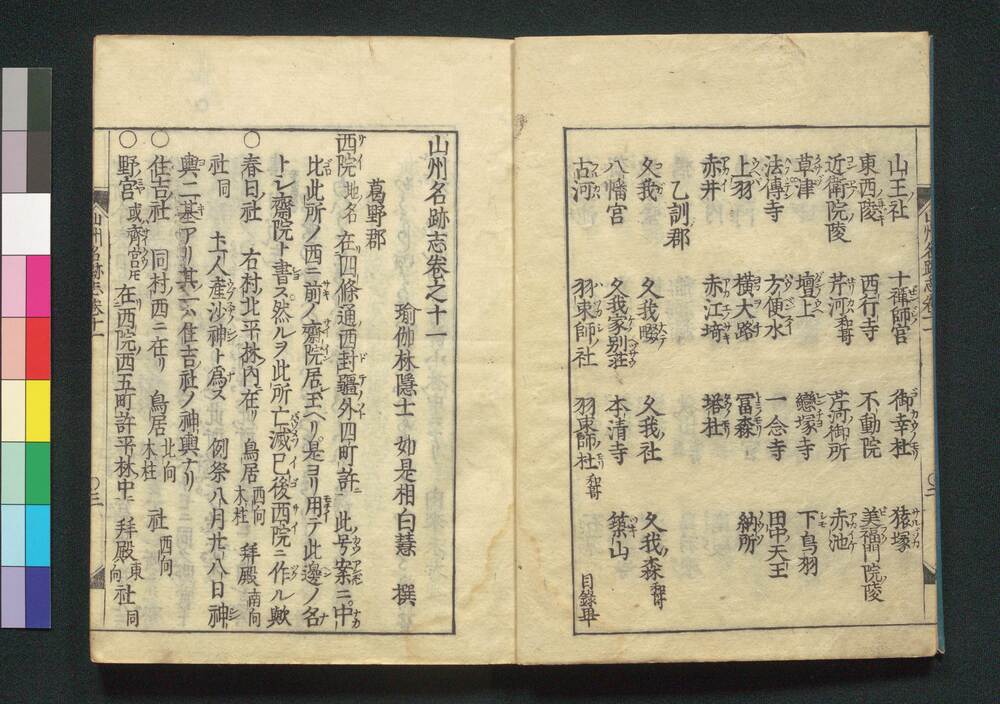 山王社 十禪師宮 御幸社 猿塚
東西陵 西行寺 不動院 美福門院陵
近衛院陵 芹河 和哥 芹河御所 赤池
草津 壇上 戀塚寺 下鳥羽
法傳寺 方便水 一念寺 田中天王
上羽 横大路 冨森 納所
赤井 赤江埼 塔杜
乙訓郡
久我 久我畷 久我社 久我森 和哥
八幡宮 久我家別荘 本清寺 築山
古河 羽束師社 羽束師杜 和哥 目錄畢
山州名跡志卷之十一
瑜伽林隱士 如是相白慧 撰
葛野郡
西院 地名 在四條通西封疆外四町許ニ 此号案ニ。中
比此所ノ西ニ前ノ齋院居玉ヘリ是ヨリ用テ此邊ノ名
トレ齋院ト書ス然ルヲ此所亡滅已後西院ニ作ル歟
○春日社 右村北平林内ニ在リ 鳥居 西向木柱 拜殿 南向
社 同 土人産沙神ト爲ス 例祭八月廿八日神
輿二基アリ其一ハ住吉社ノ神輿ナリ
○住吉社 同村西ニ在リ 鳥居 北向木柱 社 西向
○野宮 或齊宮モ 在西院西五町許平林中ニ 拜殿 東向 社 同
山州名跡志卷十一
○三